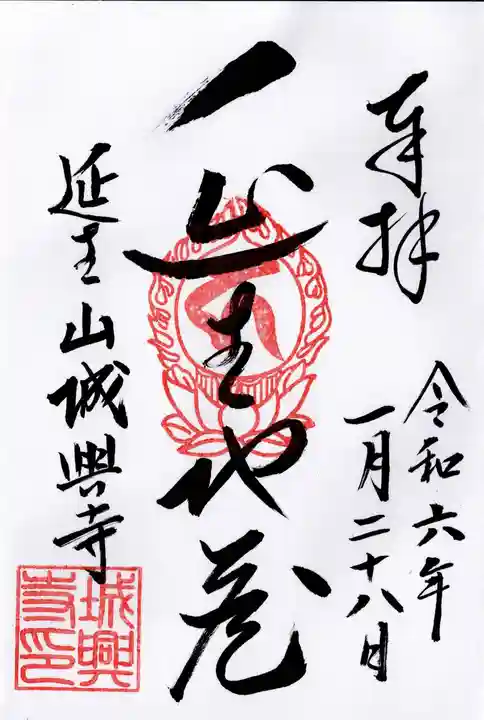 奉拝
令和六年
一月二十八日
延生地蔵
延生山城興寺
城興
寺印